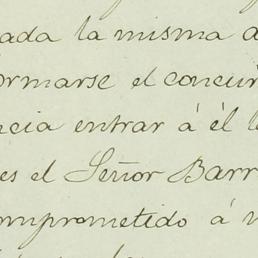 ada la misma a
ormarse el concur
ncia entrar á él l
es el Señor Barr
omprometido á